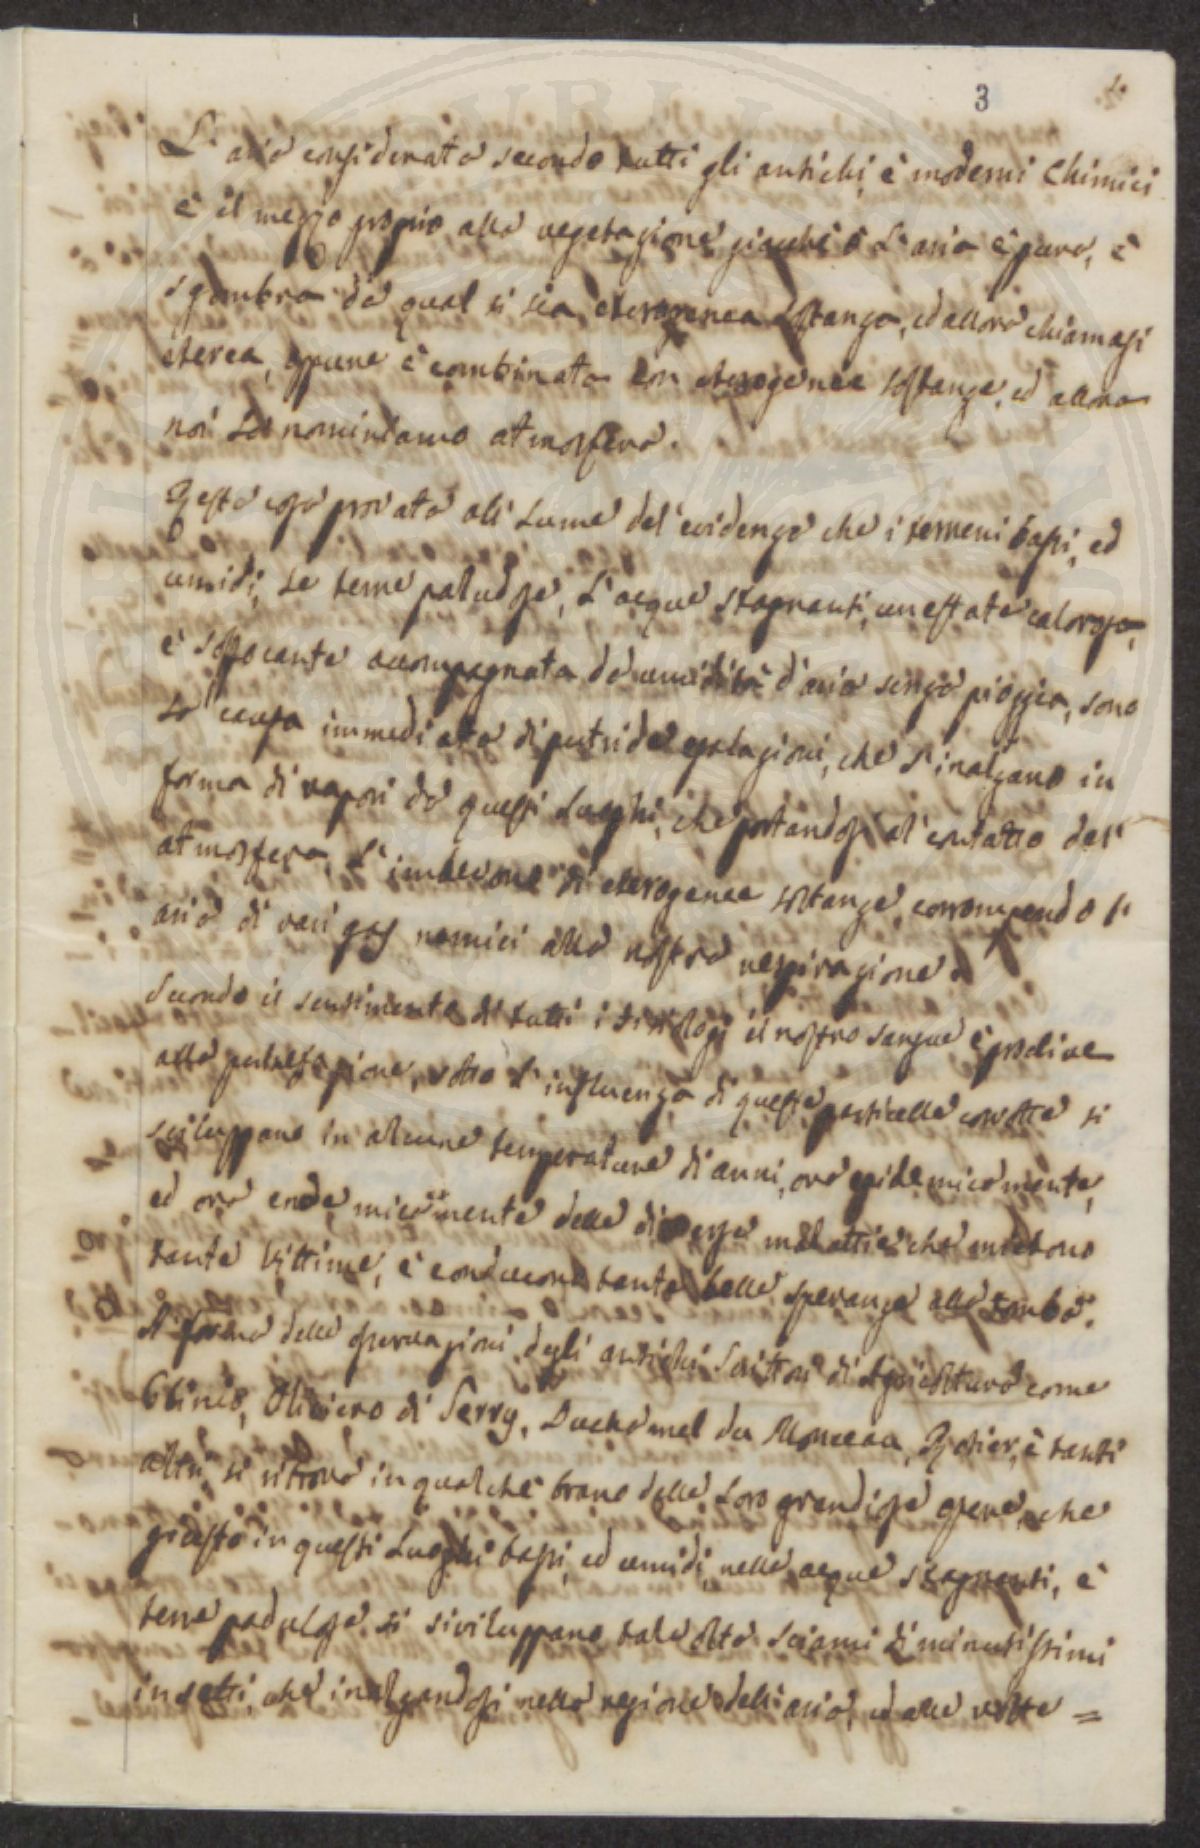 3
L'aria considerata secondo tutti gli antichi, è moderni Chimici
è il mezzo proprio alla vegetazione giacchè o L'aria è pura, è
sgombra da qual si sia eterogenea sostanza, ed allora chiamasi
eterea, oppure è combinata con eterogenee sostanze, ed allora
noi La nominiamo atmosfera.
Questa cosa provata all Lume del'evidenza che i terreni bassi, ed
umidi, Le terre paludose, L'acque stagnanti, un estate calorosa,
è soffocante accompagnata da umidità d'aria senza pioggia, sono
La causa immediata di putride esalazioni, che s'inalzano in
forma di vapori da questi Luoghi, che portandosi al contatto del'
atmosfera, L'imbevono di eterogenee sostanze, corrompendo l'
aria di vari gas nemici alla nostra respirazione.
Secondo il sentimento di tutti i Fisiologi il nostro sangue è proclive
alla putrefazione, sotto L'influenza di queste particelle corrotte si
sviluppano in alcune temperature di anni, ora epidemicamente,
ed ora endemicamente delle diverse malattie che mietono
tante Vittime, è conducono tante belle speranze alla tomba.
A forma delle osservazioni degli antichi Scrittori di Agricoltura come
Plinio, Oliviero di Serry, Duchamel du Monceau, Rozier, è tanti
altri si ritrova in qualche brano delle Loro grandiose opere, che
giusto in questi Luoghi bassi, ed umidi, nelle acque stagnanti, è
terre padulose si sviluppano tale volta sciami di minutissimi
insetti, che inalzandosi nella regione dell'aria, ed alle volte =